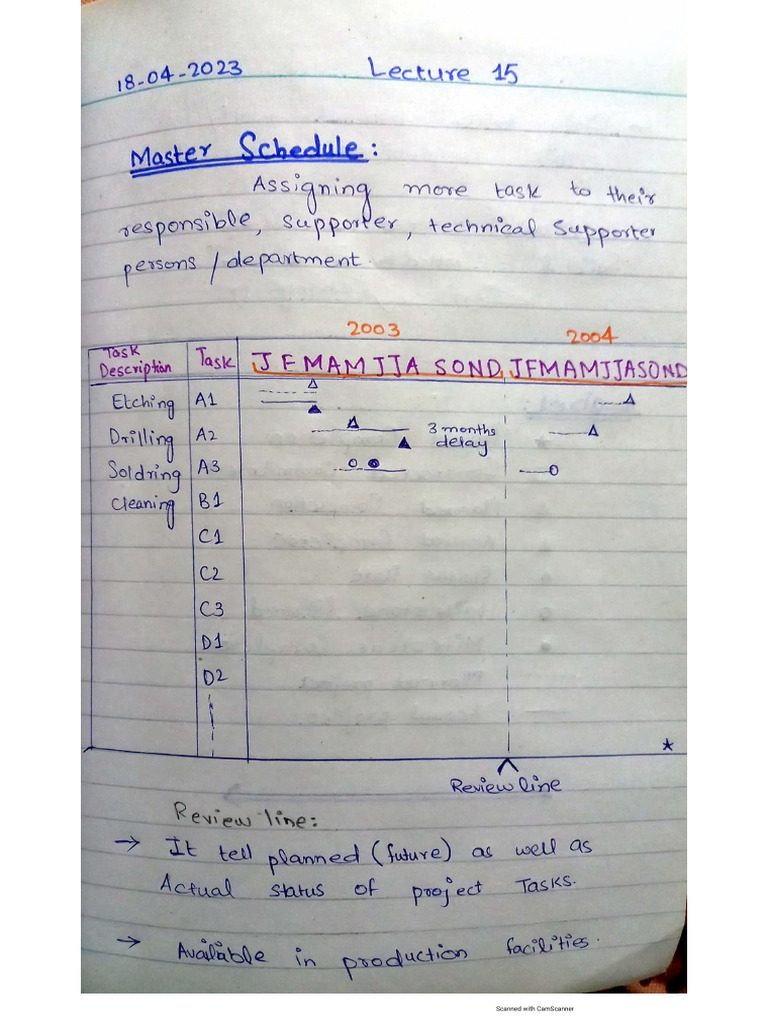 18-04-2023 Lecture 15
Master Schedule:
Assigning more task to their
responsible, supporter, technical supporter
persons / department.
2003 2004
Task Description Task J F M A M J J A S O N D J F M A M J J A S O N D
Etching A1
Drilling A2 3 months delay
Soldring A3
Cleaning B1
C1
C2
C3
D1
D2
Review line
Review line:
→ It tell planned (future) as well as
Actual status of project Tasks.
→ Available in production facilities.
Scanned with CamScanner